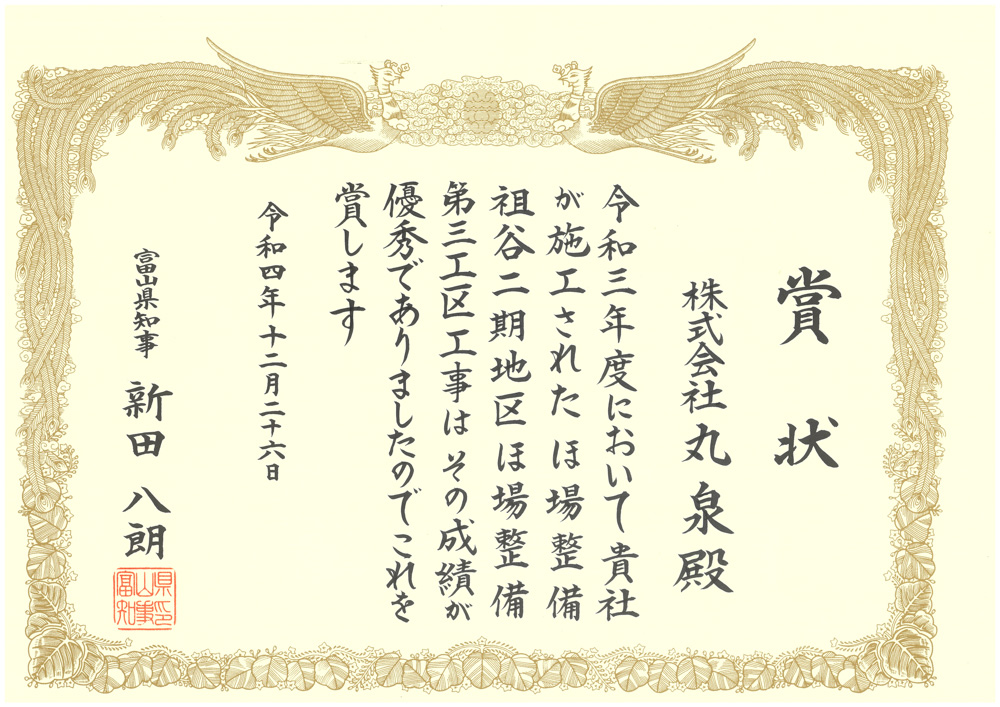 賞状
株式会社丸泉殿
令和三年度において貴社
が施工されたほ場整備
祖谷二期地区ほ場整備
第三工区工事はその成績が
優秀でありましたのでこれを
賞します
令和四年十二月二十六日
富山県知事 新田八朗
富山県知事印